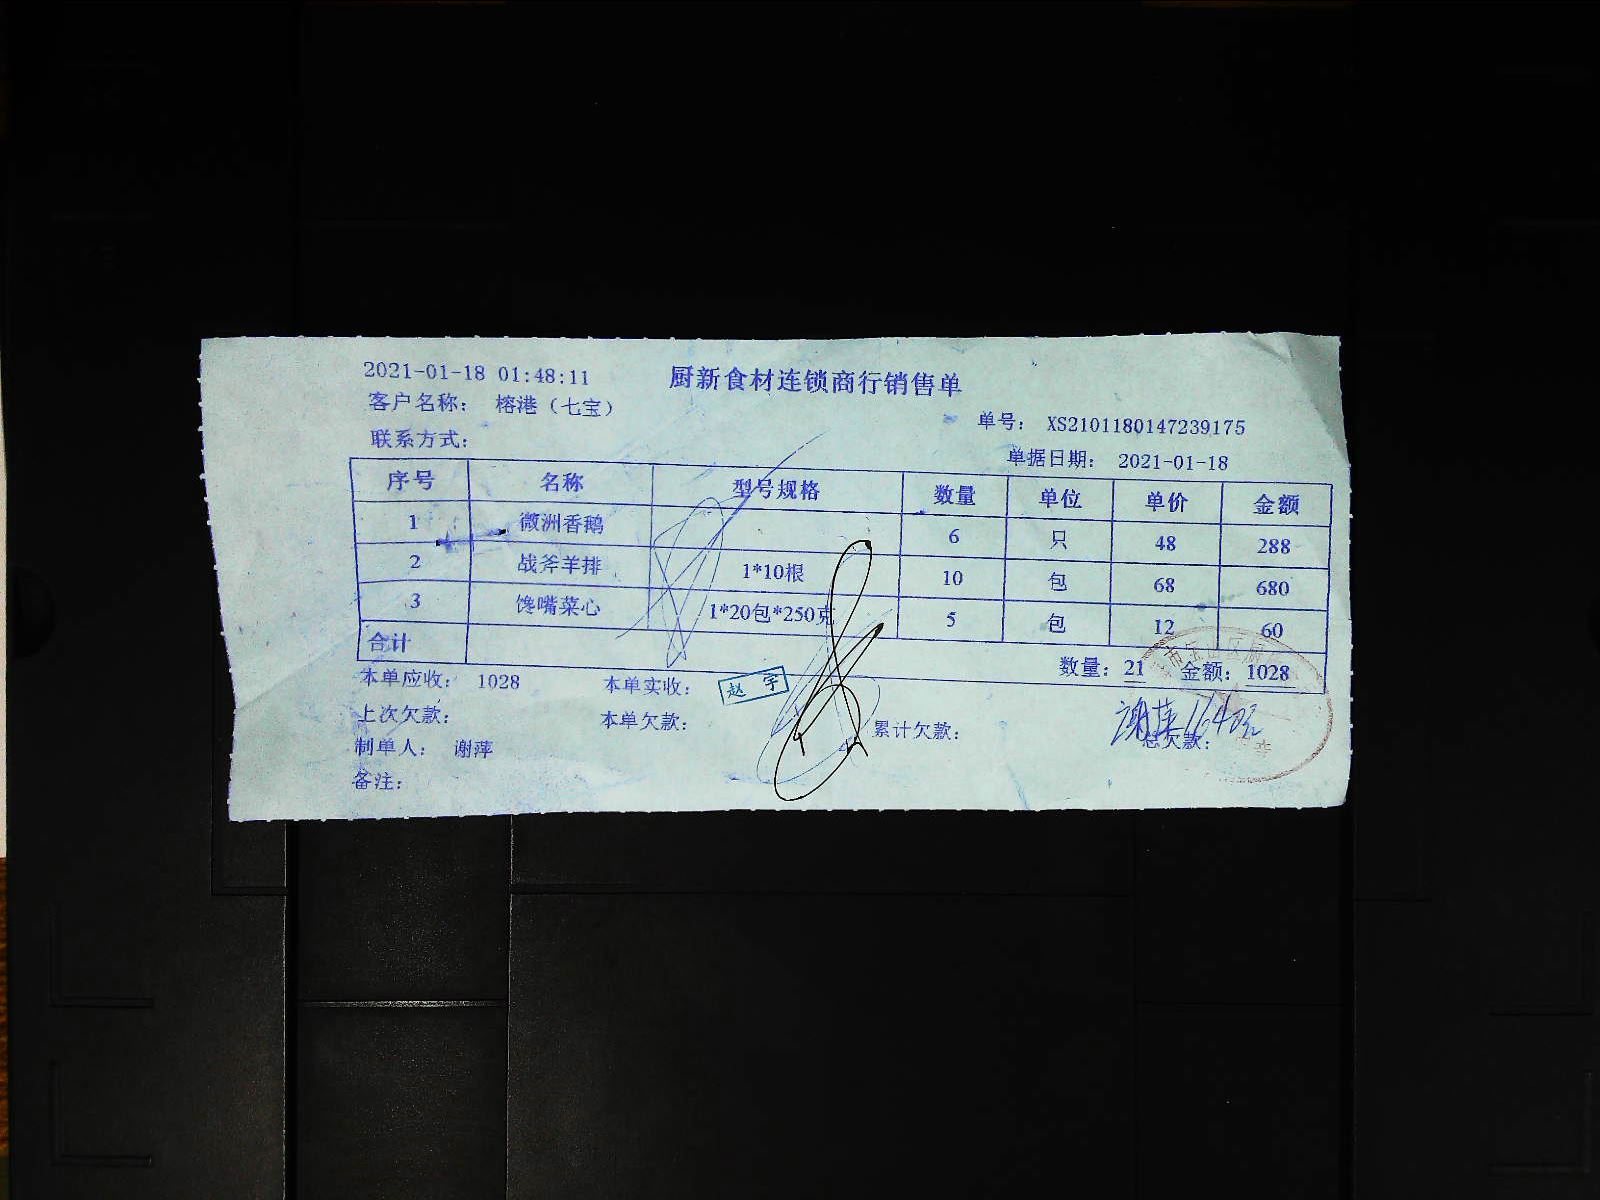 2021-01-18 01:48:11
厨新食材连锁商行销售单
客户名称： 榕港（七宝）
单号： XS2101180147239175
联系方式：
单据日期： 2021-01-18
序号 名称 型号规格 数量 单位 单价 金额
1 微洲香鹅 6 只 48 288
2 战斧羊排 1*10根 10 包 68 680
3 馋嘴菜心 1*20包*250克 5 包 12 60
合计 数量：21 金额：1028
本单应收： 1028 本单实收： 赵宇
上次欠款： 本单欠款： 累计欠款： 总欠款：
制单人： 谢萍
备注：